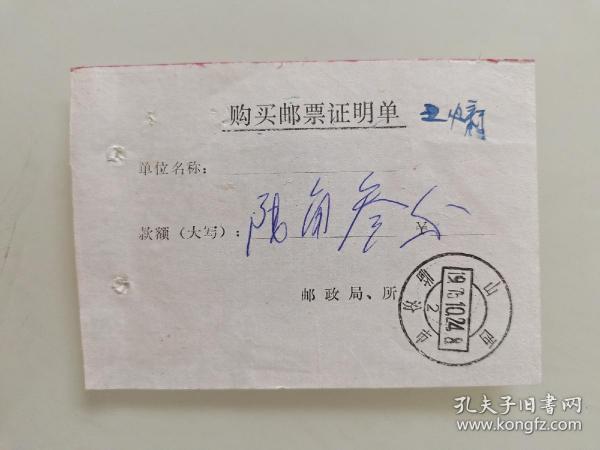 购买邮票证明单
单位名称：
款额（大写）：陆角叁分
￥
邮政局、所
山西
临汾
19.75.10.24.8
2
孔夫子旧书网
www.kongfz.com